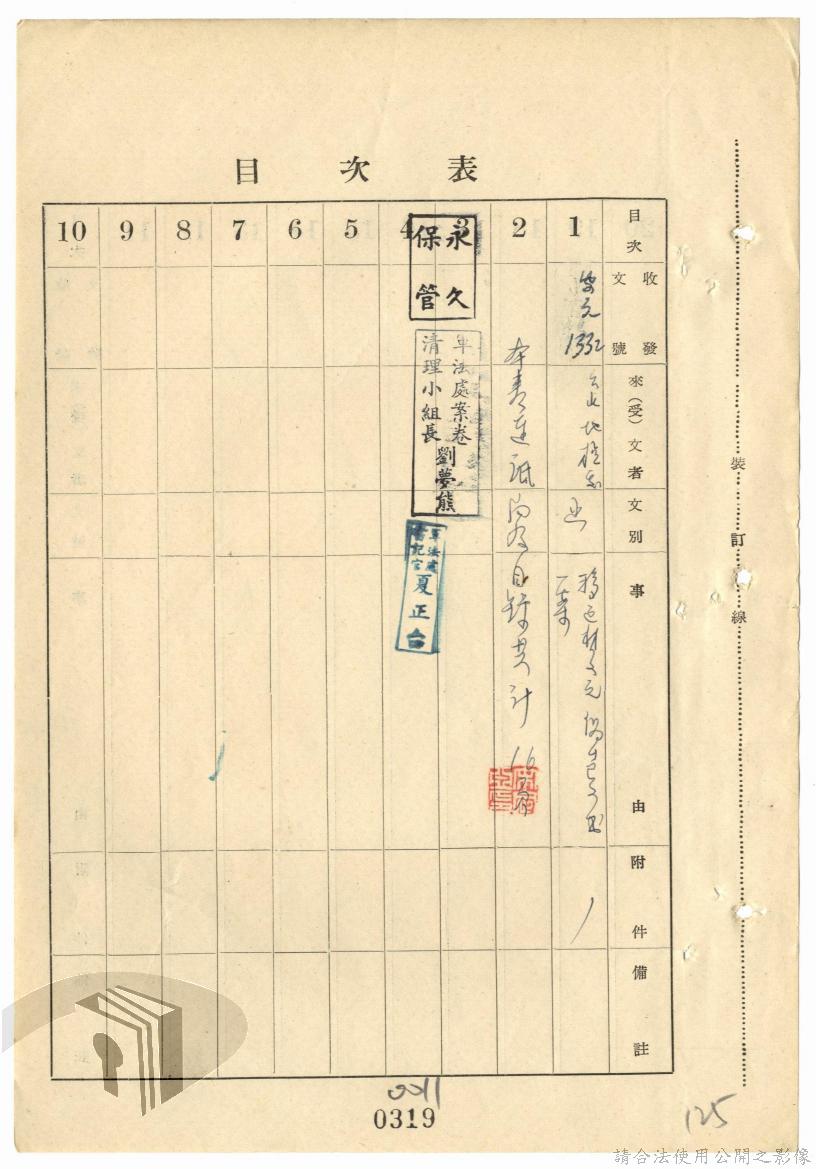 目次表
目次 1 2 3 4 5 6 7 8 9 10
收發文號
來(受)文者
文別
事由
附件
備註
安元
1332
台北地檢處
一案
本卷連証內及目錄共計16頁
永久
保管
軍法處案卷
清理小組長
劉夢熊
軍法處
書記官
夏正台
裝訂線
0011
0319
125
請合法使用公開之影像